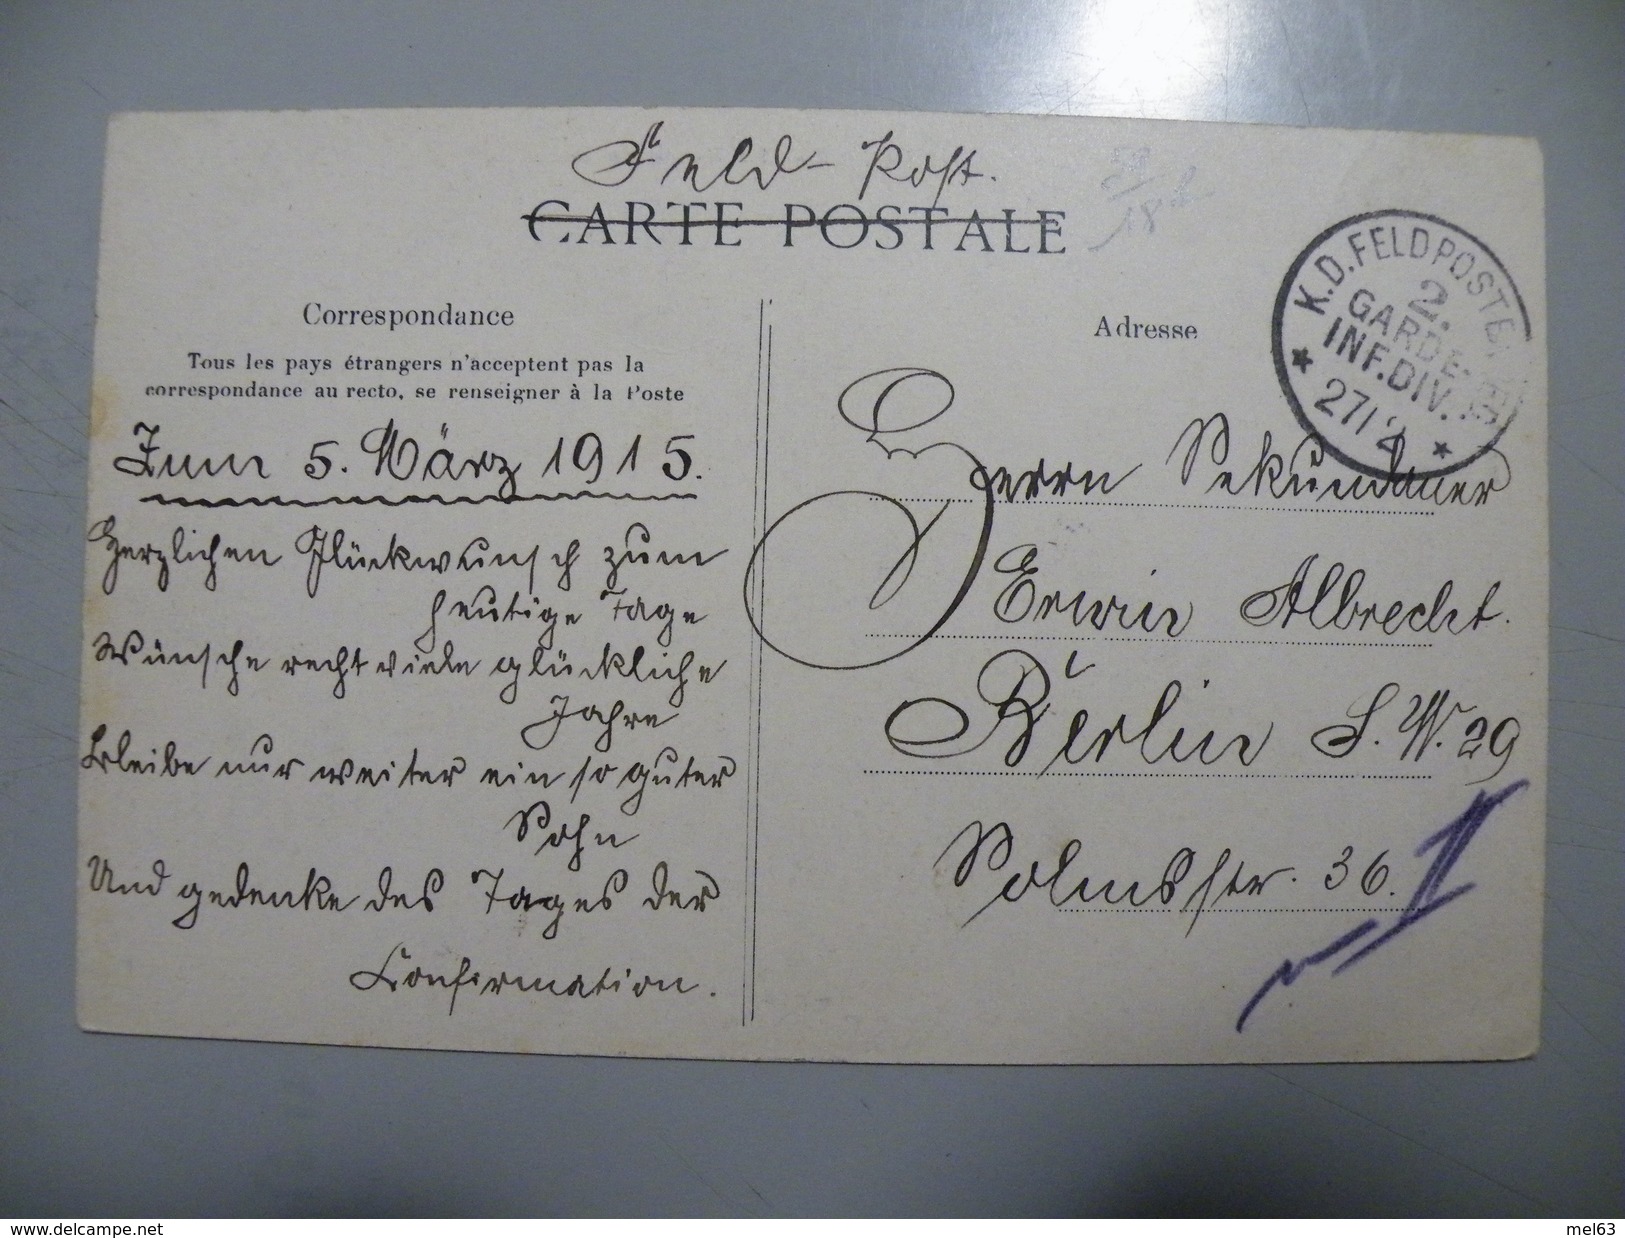 Feld-Post.
CARTE POSTALE
Correspondance
Tous les pays étrangers n'acceptent pas la
correspondance au recto, se renseigner à la Poste
Zum 5. März 1915.
Herzlichen Glückwunsch zum
heutige Tage
Wünsche recht viele glückliche
Jahre
Bleibe nur weiter ein so guter
Sohn
Und gedenke des Tages der
Confirmation.
K.D. FELDPOSTEXP.
2.
GARDE-
INF.DIV.
27/2
Adresse
Herrn Sekundaner
Erwin Albrecht.
Berlin S.W. 29
Solmsstr. 36.
www.delcampe.net
mel63